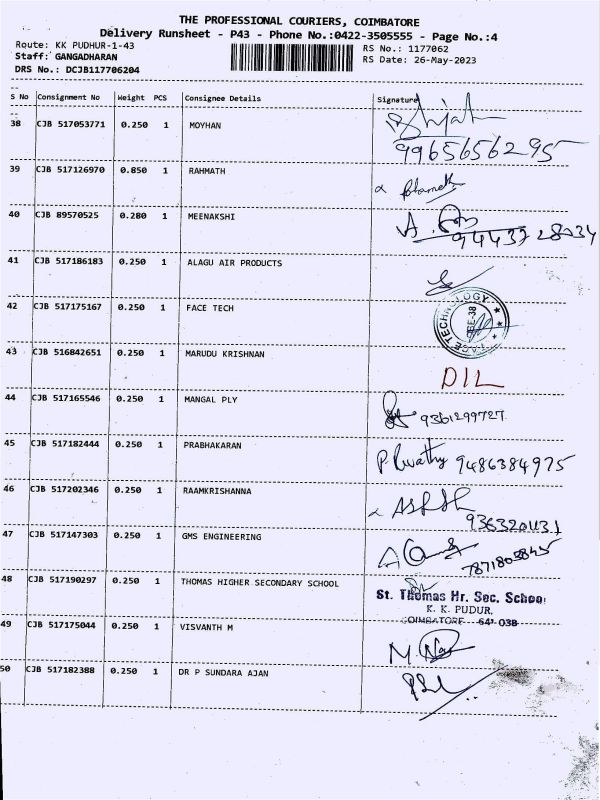 THE PROFESSIONAL COURIERS, COIMBATORE
Delivery Runsheet - P43 - Phone No.:0422-3505555 - Page No.:4
Route: KK PUDHUR-1-43 RS No.: 1177062
Staff: GANGADHARAN RS Date: 26-May-2023
DRS No.: DCJB117706204
S No Consignment No Weight PCS Consignee Details Signature
38 CJB 517053771 0.250 1 MOYHAN
9965656295
39 CJB 517126970 0.850 1 RAHMATH
40 CJB 89570525 0.280 1 MEENAKSHI
9443728034
41 CJB 517186183 0.250 1 ALAGU AIR PRODUCTS
42 CJB 517175167 0.250 1 FACE TECH
43 CJB 516842651 0.250 1 MARUDU KRISHNAN
DIL
44 CJB 517165546 0.250 1 MANGAL PLY
9361299727
45 CJB 517182444 0.250 1 PRABHAKARAN
9486384975
46 CJB 517202346 0.250 1 RAAMKRISHANNA
9363201131
47 CJB 517147303 0.250 1 GMS ENGINEERING
48 CJB 517190297 0.250 1 THOMAS HIGHER SECONDARY SCHOOL
St. Thomas Hr. Sec. School
K. K. PUDUR,
COIMBATORE 641 038
49 CJB 517175044 0.250 1 VISVANTH M
50 CJB 517182388 0.250 1 DR P SUNDARA AJAN